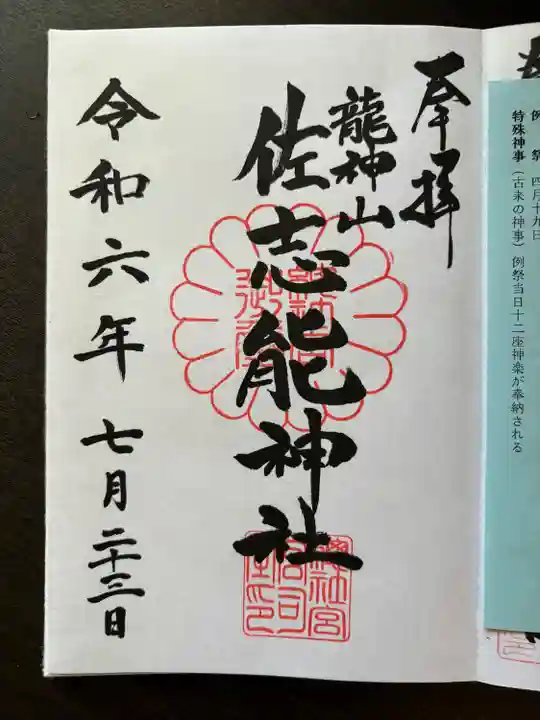 例　祭　四月十九日
特殊神事（古来の神事）例祭当日十二座神楽が奉納される
奉拝
龍神山
佐志能神社
令和六年 七月二十三日